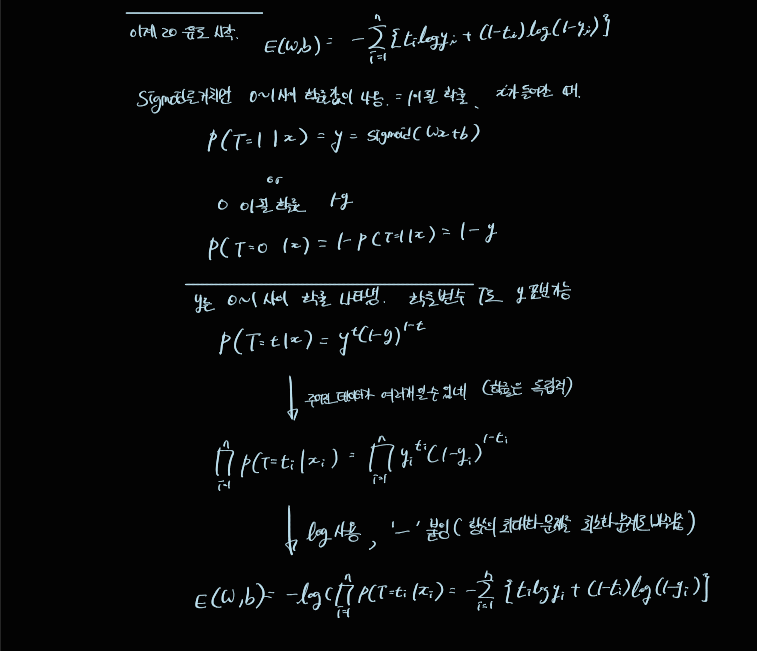 이제 20 유도 시작. E(W,b) = -∑_{i=1}^{n} {t_i log y_i + (1-t_i) log(1-y_i)}
Sigmoid로 거치면 0~1사이 확률값이 나옴. = 1이될 확률, x가 들어간 때.
P(T=1 | x) = y = sigmoid(Wx+b)
or
0 이 될 확률 1-y
P(T=0 | x) = 1-P(T=1|x) = 1-y
y는 0~1 사이 확률 나타냄. 확률변수 T로 y 표현가능
P(T=t|x) = y^t(1-y)^{1-t}
↓ 주어진 데이터가 여러개일수 있네 (확률은 독립적)
∏_{i=1}^{n} P(T=t_i|x_i) = ∏_{i=1}^{n} y_i^{t_i}(1-y_i)^{1-t_i}
↓ log 사용, '-' 붙임 (함수의 최대화 문제를 최소화 문제로 바꿔줌)
E(W,b) = -log(∏_{i=1}^{n} P(T=t_i|x_i) = -∑_{i=1}^{n} {t_i log y_i + (1-t_i) log(1-y_i)}